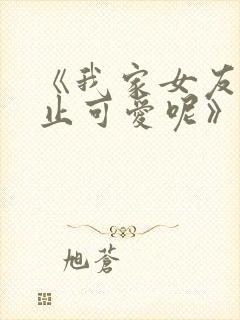 《我家女友
止可愛呢》
旭蒼